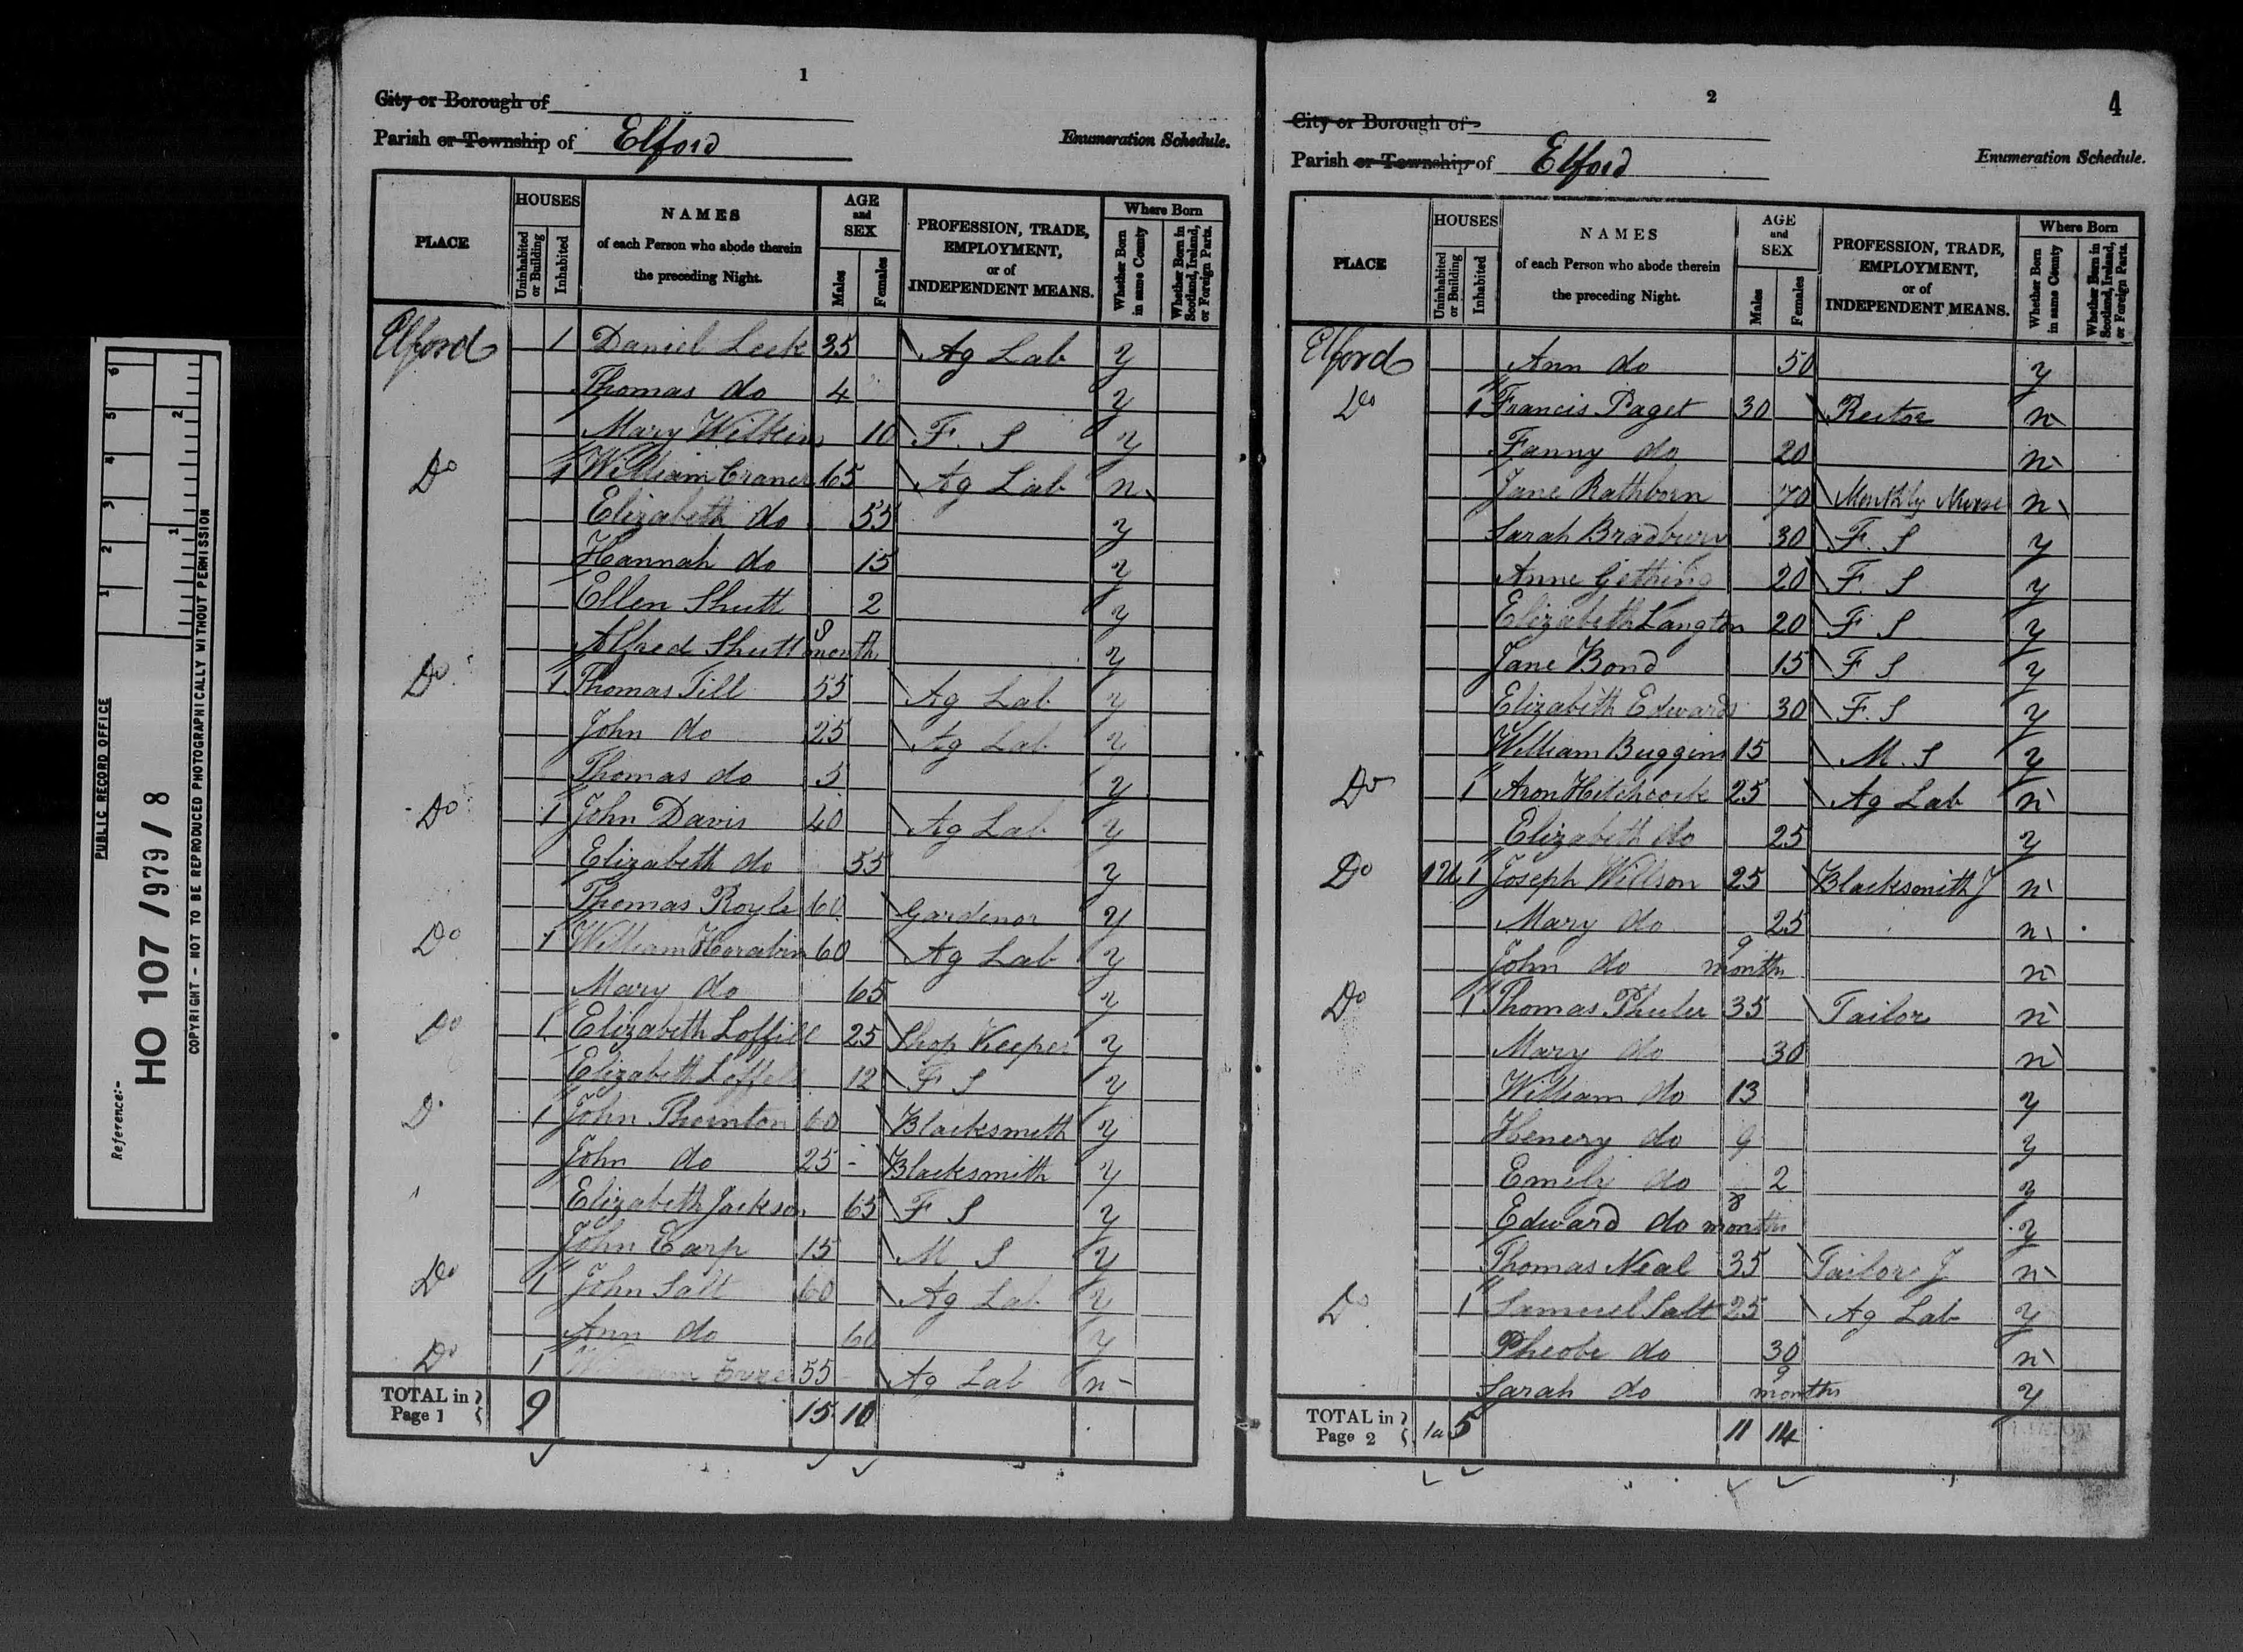 PUBLIC RECORD OFFICE
Reference:-
HO 107 / 979 / 8
COPYRIGHT - NOT TO BE REPRODUCED PHOTOGRAPHICALLY WITHOUT PERMISSION
1 2 3 4 5 6
1 2
1
City or Borough of
Parish or Township of Elford
Enumeration Schedule.
PLACE
HOUSES
Uninhabited or Building
Inhabited
NAMES
of each Person who abode therein
the preceding Night.
AGE
and
SEX
Males
Females
PROFESSION, TRADE,
EMPLOYMENT,
or of
INDEPENDENT MEANS.
Where Born
Whether Born in same County
Whether Born in Scotland, Ireland, or Foreign Parts.
Elford 1 Daniel Leek 35 Ag Lab y
Thomas do 4 y
Mary Wilkins 10 F. S y
Do 1 William Craner 65 Ag Lab n
Elizabeth do 55 y
Hannah do 15 y
Ellen Shutt 2 y
Alfred Shutt 8 month y
Do 1 Thomas Till 55 Ag Lab y
John do 25 Ag Lab y
Thomas do 5 y
Do 1 John Davis 40 Ag Lab y
Elizabeth do 55 y
Thomas Royle 60 Gardenor y
Do 1 William Horobin 60 Ag Lab y
Mary do 65 y
Do 1 Elizabeth Loffill 25 Shop Keeper y
Elizabeth Loffell 12 F S y
Do 1 John Thornton 60 Blacksmith y
John do 25 Blacksmith y
Elizabeth Jackson 65 F S y
John Earp 15 M S y
Do 1 John Salt 60 Ag Lab y
Ann do 60 y
Do 1 55 Ag Lab n
TOTAL in Page 1 9 15 10
2
4
City or Borough of
Parish or Township of Elford
Enumeration Schedule.
PLACE
HOUSES
Uninhabited or Building
Inhabited
NAMES
of each Person who abode therein
the preceding Night.
AGE
and
SEX
Males
Females
PROFESSION, TRADE,
EMPLOYMENT,
or of
INDEPENDENT MEANS.
Where Born
Whether Born in same County
Whether Born in Scotland, Ireland, or Foreign Parts.
Elford Ann do 50 y
Do 1 Francis Paget 30 Rector n
Fanny do 20 n
Jane Rathborn 70 Monthly Nurse n
Sarah Bradbury 30 F. S y
Anne Gething 20 F. S y
Elizabeth Langton 20 F S y
Jane Bond 15 F S y
Elizabeth Edwards 30 F. S y
William Buggins 15 M. S y
Do 1 Aron Hitchcock 25 Ag Lab n
Elizabeth do 25 y
Do 1U 1 Joseph Willson 25 Blacksmith J n
Mary do 25 n
John do 9 month n
Do 1 Thomas 35 Tailor n
Mary do 30 n
William do 13 y
Henery do 9 y
Emely do 2 y
Edward do 8 months y
Thomas Neal 35 Tailor J n
Do 1 Samuel Salt 25 Ag Lab y
Pheobe do 30 n
Sarah do 9 months y
TOTAL in Page 2 1u 5 11 14